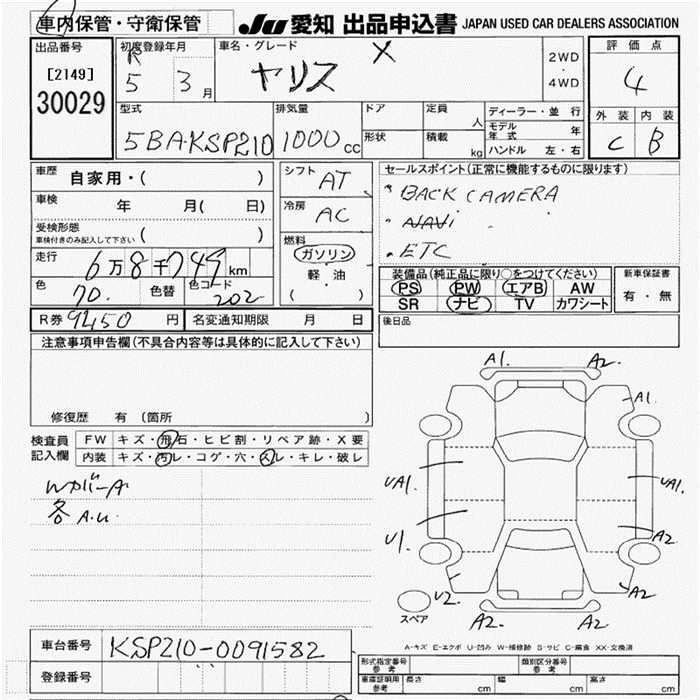 車内保管・守衛保管 JU 愛知 出品申込書 JAPAN USED CAR DEALERS ASSOCIATION
出品番号 初度登録年月 車名・グレード 評価点
[2149] R5 3月 ヤリス X 2WD・4WD 4
30029
型式 排気量 ドア 定員 人 ディーラー・並行 外装 内装
5BA-KSP210 1000cc 形状 積載 kg モデル年式 年 C B
ハンドル 左・右
車歴 自家用・( ) シフト AT セールスポイント(正常に機能するものに限ります)
車検 年 月( 日) 冷房 AC BACK CAMERA
受検形態 車検付きのみ記入して下さい ( ) NAVi
燃料 ガソリン 軽・油 ( ) ETC
走行 6万8千749km 装備品(純正品に限り○をつけてください) 新車保証書
色 70. 色替 色コード 202 PS PW エアB AW 有・無
SR ナビ TV カワシート
R券 9450円 名変通知期限 月 日 後日品
注意事項申告欄(不具合内容等は具体的に記入して下さい)
修復歴 有 (箇所
検査員記入欄 FW キズ・飛石・ヒビ割・リペア跡・X要
内装 キズ・汚レ・コゲ・穴・スレ・キレ・破レ
WカバーA
各 A.U.
A1. A2.
A1.
UA1. UA1.
U1. A2
U2. A2
A2 A2
スペア
A-キズ E-エクボ U-凹み W-補修跡 S-サビ C-腐食 XX-交換済
車台番号 KSP210-0091582
登録番号
形式指定番号 参考 類別区分番号 参考
車庫証明用 参考 長さ cm 幅 cm 高さ cm